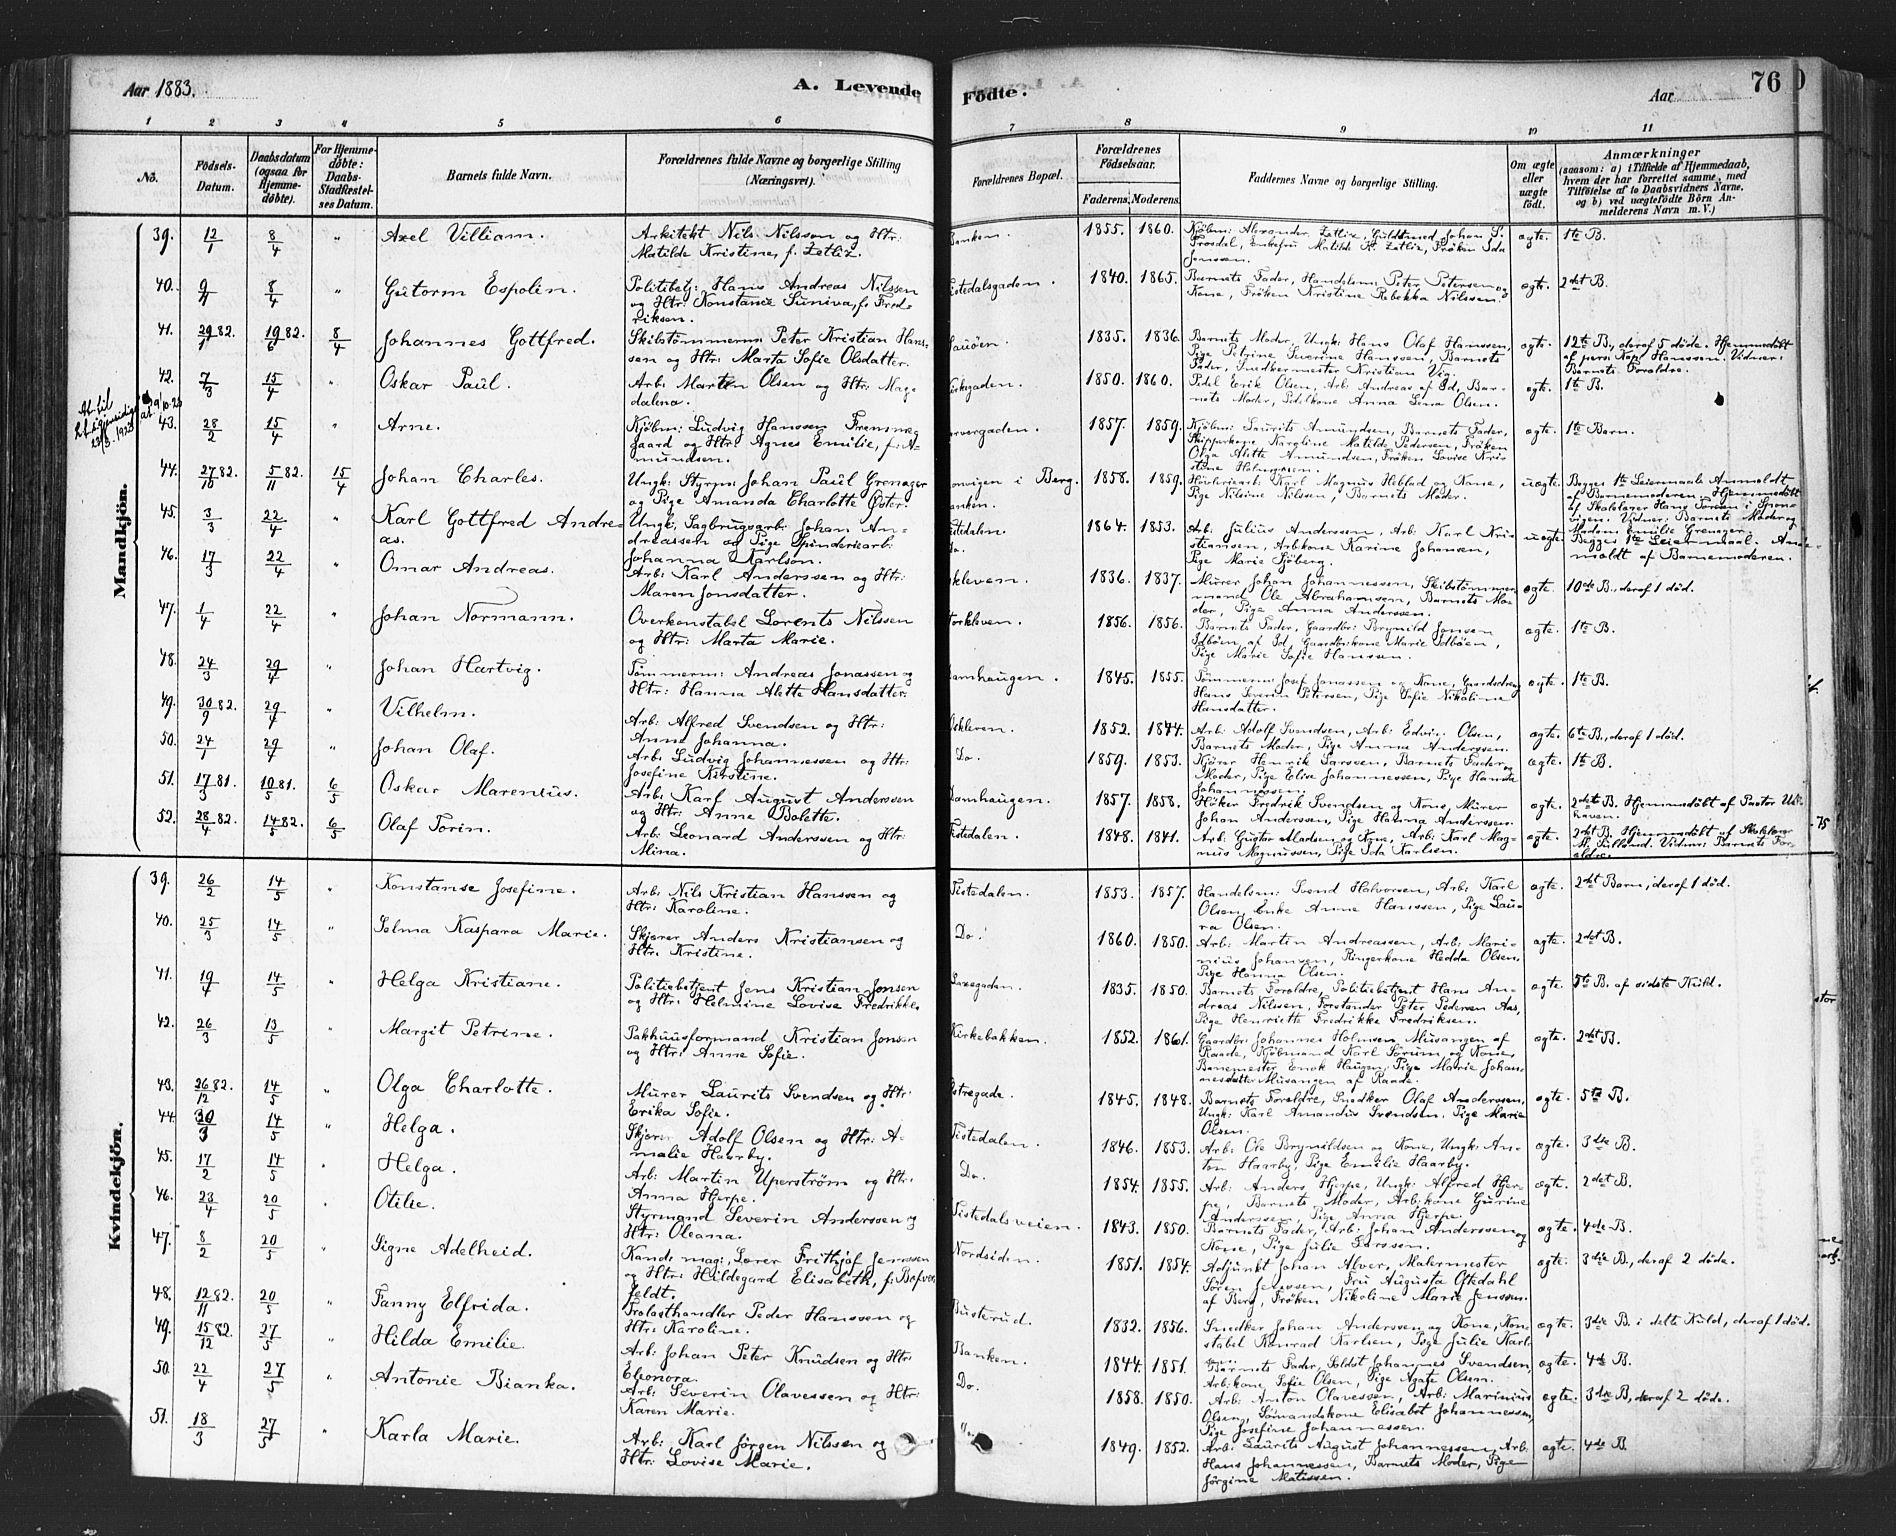 Aar 1883.
A. Levende
Födte.
Aar
76
1 2 3 4 5 6 7 8 9 10 11
No.
Födsels-Datum.
Daabsdatum (ogsaa for Hjemmedøbte).
For Hjemmedøbte: Daabs-Stadfæstelses Datum.
Barnets fulde Navn.
Forældrenes fulde Navne og borgerlige Stilling (Næringsvei).
Forældrenes Bopæl.
Forældrenes Födselsaar.
Faderens. Moderens.
Faddernes Navne og borgerlige Stilling.
Om ægte eller uægte födt.
Anmærkninger (saasom: a) i Tilfælde af Hjemmedaab, hvem der har forrettet samme, med Tilföielse af to Daabsvidners Navne, og b) ved uægtefödte Börn Anmelderens Navn m. V.)
Mandkjön.
39. 12/1 8/4 " Axel Villiam. Arkitekt Nils Nilsson og Htr: Matilde Kristine, f. Zetliz. Banken. 1855. 1860. Kjøbm: Alexander Zetliz, Guldsmed Johan S. Frosdal, Enkefru Matilde K. Zetliz, Frøken Ida Jonssen. ægte. 1te B.
40. 8/4 " Gutorm Espolin. Politibetj: Hans Andreas Nilssen og Htr: Konstanse Suniva, f. Fredriksen. Tistedalsgaden. 1840. 1865. Barnets Fader, Handelsm: Peter Petersen og Kone, Frøken Kristine Rebekka Nilssen. ægte. 2det B.
41. 29/1 82. 19/6 82. 8/4 Johannes Gottfred. Skibstømmerm: Peter Kristian Hanssen og Htr: Marte Sofie Olsdatter. Sauøen. 1835. 1836. Barnets Moder, Ungk: Hans Olaf Hanssen, Pige Petrine Severine Hanssen, Barnets Fader, Snedkermester Kristian Vig. ægte. 12te B., deraf 5 døde. Hjemmedøbt af pers: Kap: Hanssen. Vidner: Barnets Forældre.
42. 7/3 15/4 " Oskar Paul. Arb: Marten Olsen og Htr: Magdalena. 1850. 1860. Pedel Erik Olsen, Arb: Andreas af Id, Barnets Moder, Pedelkone Anna Lena Olsen. ægte. 1te B.
43. 28/2 15/4 " Arne. Kjøbm: Ludvig Hanssen Fremmegaard og Htr: Agnes Emilie, f. Amundsen. 1857. 1859. Kjøbm: Laurits Amundsen, Barnets Fader, Skipperkone Karoline Matilde Pedersen, Frøken Olga Alette Amundsen, Frøken Lovise Kristine Holmgreen. ægte. 1te Barn.
44. 27/10 82. 5/11 82. 15/4 Johan Charles. Ungk: Styrm: Johan Paul Grenager og Pige Amanda Charlotte Øster. i Berg. Banken. 1858. 1859. Karl Magnus Heblad og Kone, Pige Nilsine Nilssen, Barnets Moder. uægte. Begges 1te Leiermaal. Anmeldt af Barnemoderen. Hjemmedøbt af Skolelærer Hans Torsen i Sponvigen. Vidner: Barnets Moder og Madm: Emilie Grenager.
45. 3/3 22/4 " Karl Gottfred Andreas. Ungk: Sagbrugsarb: Johan Andreassen og Pige Spinderiarb: Johanna Karlson. Tistedalen. 1864. 1853. Arb: Julius Anderssen, Arb: Karl Kristiansen, Arbkone Karine Johansen, Pige Marie Sjøberg. uægte. Begges 1te Leiermaal. Anmeldt af Barnemoderen.
46. 17/3 22/4 Omar Andreas. Arb: Karl Anderssen og Htr: Maren Jonsdatter. 1836. 1837. Murer Johan Johannessen, Skibstømmermand Ole Abrahamsen, Barnets Moder, Pige Anna Anderssen. ægte. 10de B., deraf 1 død.
47. 1/4 22/4 " Johan Normann. Overkonstabel Lorents Nilssen og Htr: Marta Marie. Torkleven. 1856. 1856. Barnets Fader, Gaardbr: Brynild Jonsen Idbøen, af Id, Gaardbrkone Marie Idbøen, Pige Marie Sofie Hanssen. ægte. 1te B.
48. 24/3 29/4 " Johan Hartvig. Tømmerm: Andreas Jonassen og Htr: Hanna Alette Hansdatter. Damhaugen. 1845. 1855. Tømmerm: Josef Jonassen og Kone, Gaardsdreng Hans Severin Petersen, Pige Sofie Nikoline Hansdatter. ægte. 1te B.
49. 30/9 82. 29/4 " Vilhelm. Arb: Alfred Svendsen og Htr: Anne Johanna. Oskleven. 1852. 1844. Arb: Adolf Svendsen, Arb: Edvin Olsen, Barnets Moder, Pige Anna Anderssen. ægte. 6te B., deraf 1 død.
50. 24/1 29/4 " Johan Olaf. Arb: Ludvig Johannessen og Htr: Josefine Kirstine. Do. 1859. 1853. Kjører Henrik Larssen, Barnets Fader og Moder, Pige Elise Johannessen, Pige Hanna Johannessen. ægte. 1te B.
51. 17/3 81. 10/5 81. 6/5 Oskar Marenius. Arb: Karl August Anderssen og Htr: Anne Bolette. Damhaugen. 1857. 1858. Høker Fredrik Svendsen og Kone, Murer Johan Anderssen, Pige Hanna Anderssen. ægte. 2det B. Hjemmedøbt af Pastor Udhaven.
52. 28/4 82. 14/5 82. 6/5 Olaf Torin. Arb: Leonard Anderssen og Htr: Mina. Tistedalen. 1848. 1841. Arb: Gustav Madsen og Kone, Arb: Karl Magnus Magnussen, Pige Ida Karlsen. ægte. 2det B. Hjemmedøbt af Skolelærer Vidner: Barnets Forældre.
Kvindekjön.
39. 26/2 14/5 " Konstanse Josefine. Arb: Nils Kristian Hanssen og Htr: Karoline. Tistedalen. 1853. 1857. Handelsm: Svend Halvorsen, Arb: Karl Olsen, Enke Anne Hanssen, Pige Laura Olsen. ægte. 2det Barn, deraf 1 død.
40. 25/3 14/5 " Selma Kaspara Marie. Skjærer Anders Kristiansen og Htr: Kristine. Do. 1860. 1850. Arb: Martin Andreassen, Arb: Marinius Johansen, Ringerkone Hedda Olsen, Pige Hanna Olsen. ægte. 2det B.
41. 19/4 14/5 " Helga Kristiane. Politibetjent Jens Kristian Jonsen og Htr: Helmine Lovise Fredrikke. 1835. 1850. Barnets Forældre, Politibetjent Hans Andreas Nilssen, Forstander Peter Pedersen Aas, Pige Henriette Fredrikke Fredriksen. ægte. 5te B. af sidste Kuld.
42. 26/3 13/5 " Margit Petrine. Pakhuusformand Kristian Jonsen og Htr: Anne Sofie. Kirkebakken. 1852. 1861. Gaardbr: Johannes Holmsen Musangen af Raade, Kjøbmand Karl Sørum og Kone, Banemester Enok Haugen, Pige Marie Johannesdatter Musangen af Raade. ægte. 2det B.
43. 26/12 82. 14/5 " Olga Charlotte. Murer Laurits Svendsen og Htr: Erika Sofie. Østregade. 1845. 1848. Barnets Forældre, Snedker Olaf Anderssen, Ungk: Karl Amandus Svendsen, Pige Marie Olsen. ægte. 5te B.
44. 30/3 14/5 " Helga. Skjærer Adolf Olsen og Htr: Amalie Haarby. Tistedalen. 1846. 1853. Arb: Ole Brynildsen og Kone, Ungk: Anton Haarby, Pige Emilie Haarby. ægte. 3die B.
45. 17/2 14/5 " Helga. Arb: Martin Uperstrøm og Htr: Anna Hjerpe. Do. 1854. 1855. Arb: Anders Hjerpe, Ungk: Alfred Hjerpe, Barnets Moder, Arbkone Gurine Anderssen, Pige Anna Hjerpe. ægte. 2det B.
46. 23/4 20/5 " Otilie. Styrmand Severin Anderssen og Htr: Oleana. Tistedalsveien. 1843. 1850. Barnets Fader, Arb: Johan Anderssen og Kone, Pige Julie Larssen. ægte. 4de B.
47. 8/2 20/5 " Signe Adelheid. Kand: mag:, Lærer Frithjof Jenssen og Htr: Hildegard Elisabeth, f. Bøfverfeldt. Nordsiden. 1851. 1854. Adjunkt Johan Alver, Malermester Søren Jenssen, Fru Augusta Oftedahl af Berg, Frøken Nikoline Marie Jenssen. ægte. 3die B., deraf 2 døde.
48. 12/11 82. 20/5 " Fanny Elfrida. Frolasthandler Peder Hanssen og Htr: Karoline. Busterud. 1832. 1856. Snedker Johan Anderssen og Kone, Konstabel Konrad Karlsen, Pige Julie Karlsen. ægte. 3die B. i dette Kuld, deraf 1 død.
49. 15/12 82. 27/5 " Hilda Emilie. Arb: Johan Peter Knudsen og Htr: Eleonora. Banken. 1844. 1851. Barnets Fader, Soldat Johannes Svendsen, Arbkone Sofie Olsen, Pige Agate Olsen. ægte. 4de B.
50. 22/4 27/5 " Antonie Bianka. Arb: Severin Olavessen og Htr: Karen Marie. Do. 1858. 1850. Arb: Anton Olavessen, Arb: Marinius Olsen, Sømandskone Elisabet Johannessen, Pige Josefine Johannessen. ægte. 3die B., deraf 2 døde.
51. 18/3 27/5 " Karla Marie. Arb: Karl Jørgen Nilssen og Htr: Lovise Marie. 1849. 1852. Arb: Laurits August Johannessen, Arb: Hans Johannessen, Barnets Moder, Pige Jørgine Matissen. ægte. 4de B.